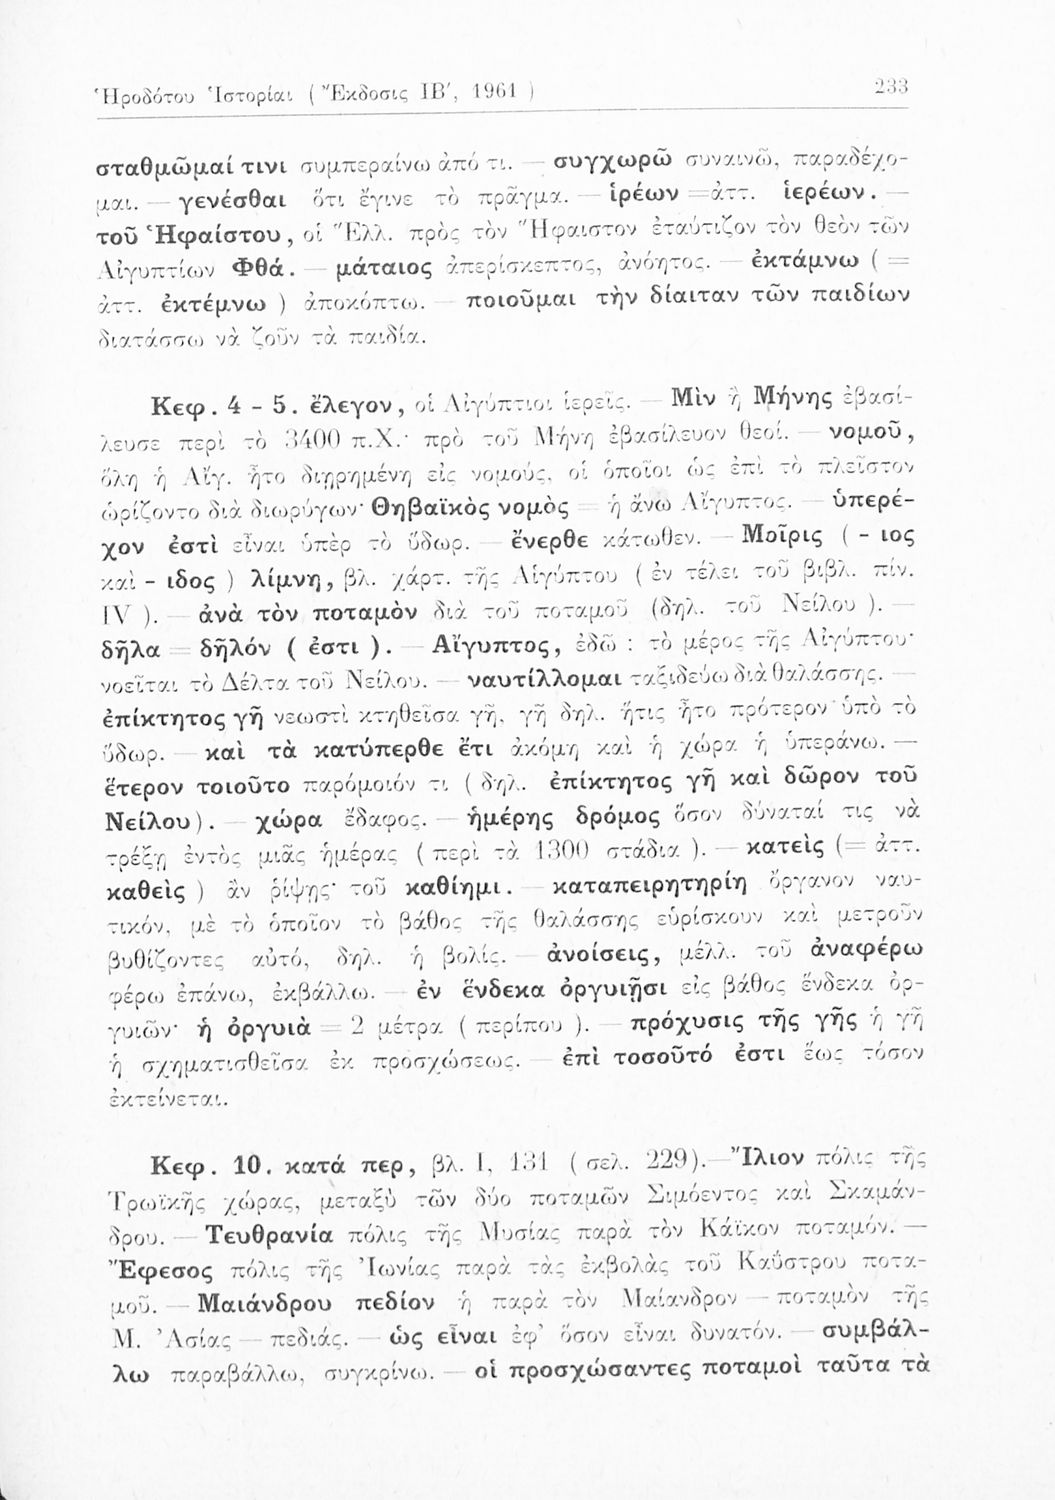 Ἡροδότου Ἱστορίαι ( Ἔκδοσις ΙΒ′, 1961 ) 233
σταθμῶμαί τινι συμπεραίνω ἀπό τι. — συγχωρῶ συναινῶ, παραδέχο-
μαι. — γενέσθαι ὅτι ἔγινε τὸ πρᾶγμα. — ἱρέων =ἀττ. ἱερέων. —
τοῦ Ἡφαίστου, οἱ Ἕλλ. πρὸς τὸν Ἥφαιστον ἐταύτιζον τὸν θεὸν τῶν
Αἰγυπτίων Φθά. — μάταιος ἀπερίσκεπτος, ἀνόητος. — ἐκτάμνω ( =
ἀττ. ἐκτέμνω ) ἀποκόπτω. — ποιοῦμαι τὴν δίαιταν τῶν παιδίων
διατάσσω νὰ ζοῦν τὰ παιδία.
Κεφ. 4 - 5. ἔλεγον, οἱ Αἰγύπτιοι ἱερεῖς. — Μὶν ἢ Μήνης ἐβασί-
λευσε περὶ τὸ 3400 π.Χ.· πρὸ τοῦ Μήνη ἐβασίλευον θεοί. — νομοῦ,
ὅλη ἡ Αἴγ. ἦτο διῃρημένη εἰς νομούς, οἱ ὁποῖοι ὡς ἐπὶ τὸ πλεῖστον
ὡρίζοντο διὰ διωρύγων· Θηβαϊκὸς νομὸς = ἡ ἄνω Αἴγυπτος. — ὑπερέ-
χον ἐστὶ εἶναι ὑπὲρ τὸ ὕδωρ. — ἔνερθε κάτωθεν. — Μοῖρις ( - ιος
καὶ - ιδος ) λίμνη, βλ. χάρτ. τῆς Αἰγύπτου ( ἐν τέλει τοῦ βιβλ. πίν.
IV ). — ἀνὰ τὸν ποταμὸν διὰ τοῦ ποταμοῦ (δηλ. τοῦ Νείλου ). —
δῆλα = δῆλόν ( ἐστι ). — Αἴγυπτος, ἐδῶ : τὸ μέρος τῆς Αἰγύπτου·
νοεῖται τὸ Δέλτα τοῦ Νείλου. — ναυτίλλομαι ταξιδεύω διὰ θαλάσσης. —
ἐπίκτητος γῆ νεωστὶ κτηθεῖσα γῆ, γῆ δηλ. ἥτις ἦτο πρότερον ὑπὸ τὸ
ὕδωρ. — καὶ τὰ κατύπερθε ἔτι ἀκόμη καὶ ἡ χώρα ἡ ὑπεράνω. —
ἕτερον τοιοῦτο παρόμοιόν τι ( δηλ. ἐπίκτητος γῆ καὶ δῶρον τοῦ
Νείλου). — χώρα ἔδαφος. — ἡμέρης δρόμος ὅσον δύναταί τις νὰ
τρέξῃ ἐντὸς μιᾶς ἡμέρας ( περὶ τὰ 1300 στάδια ). — κατεὶς (= ἀττ.
καθεὶς ) ἂν ῥίψῃς· τοῦ καθίημι. — καταπειρητηρίη ὄργανον ναυ-
τικόν, μὲ τὸ ὁποῖον τὸ βάθος τῆς θαλάσσης εὑρίσκουν καὶ μετροῦν
βυθίζοντες αὐτό, δηλ. ἡ βολίς. — ἀνοίσεις, μέλλ. τοῦ ἀναφέρω
φέρω ἐπάνω, ἐκβάλλω. — ἐν ἕνδεκα ὀργυιῇσι εἰς βάθος ἕνδεκα ὀρ-
γυιῶν· ἡ ὀργυιὰ = 2 μέτρα ( περίπου ). — πρόχυσις τῆς γῆς ἡ γῆ
ἡ σχηματισθεῖσα ἐκ προσχώσεως. — ἐπὶ τοσοῦτό ἐστι ἕως τόσον
ἐκτείνεται.
Κεφ. 10. κατά περ, βλ. I, 131 ( σελ. 229).—Ἴλιον πόλις τῆς
Τρωϊκῆς χώρας, μεταξὺ τῶν δύο ποταμῶν Σιμόεντος καὶ Σκαμάν-
δρου. — Τευθρανία πόλις τῆς Μυσίας παρὰ τὸν Κάϊκον ποταμόν. —
Ἔφεσος πόλις τῆς Ἰωνίας παρὰ τὰς ἐκβολὰς τοῦ Καΰστρου ποτα-
μοῦ. — Μαιάνδρου πεδίον ἡ παρὰ τὸν Μαίανδρον — ποταμὸν τῆς
Μ. Ἀσίας — πεδιάς. — ὡς εἶναι ἐφ’ ὅσον εἶναι δυνατόν. — συμβάλ-
λω παραβάλλω, συγκρίνω. — οἱ προσχώσαντες ποταμοὶ ταῦτα τὰ